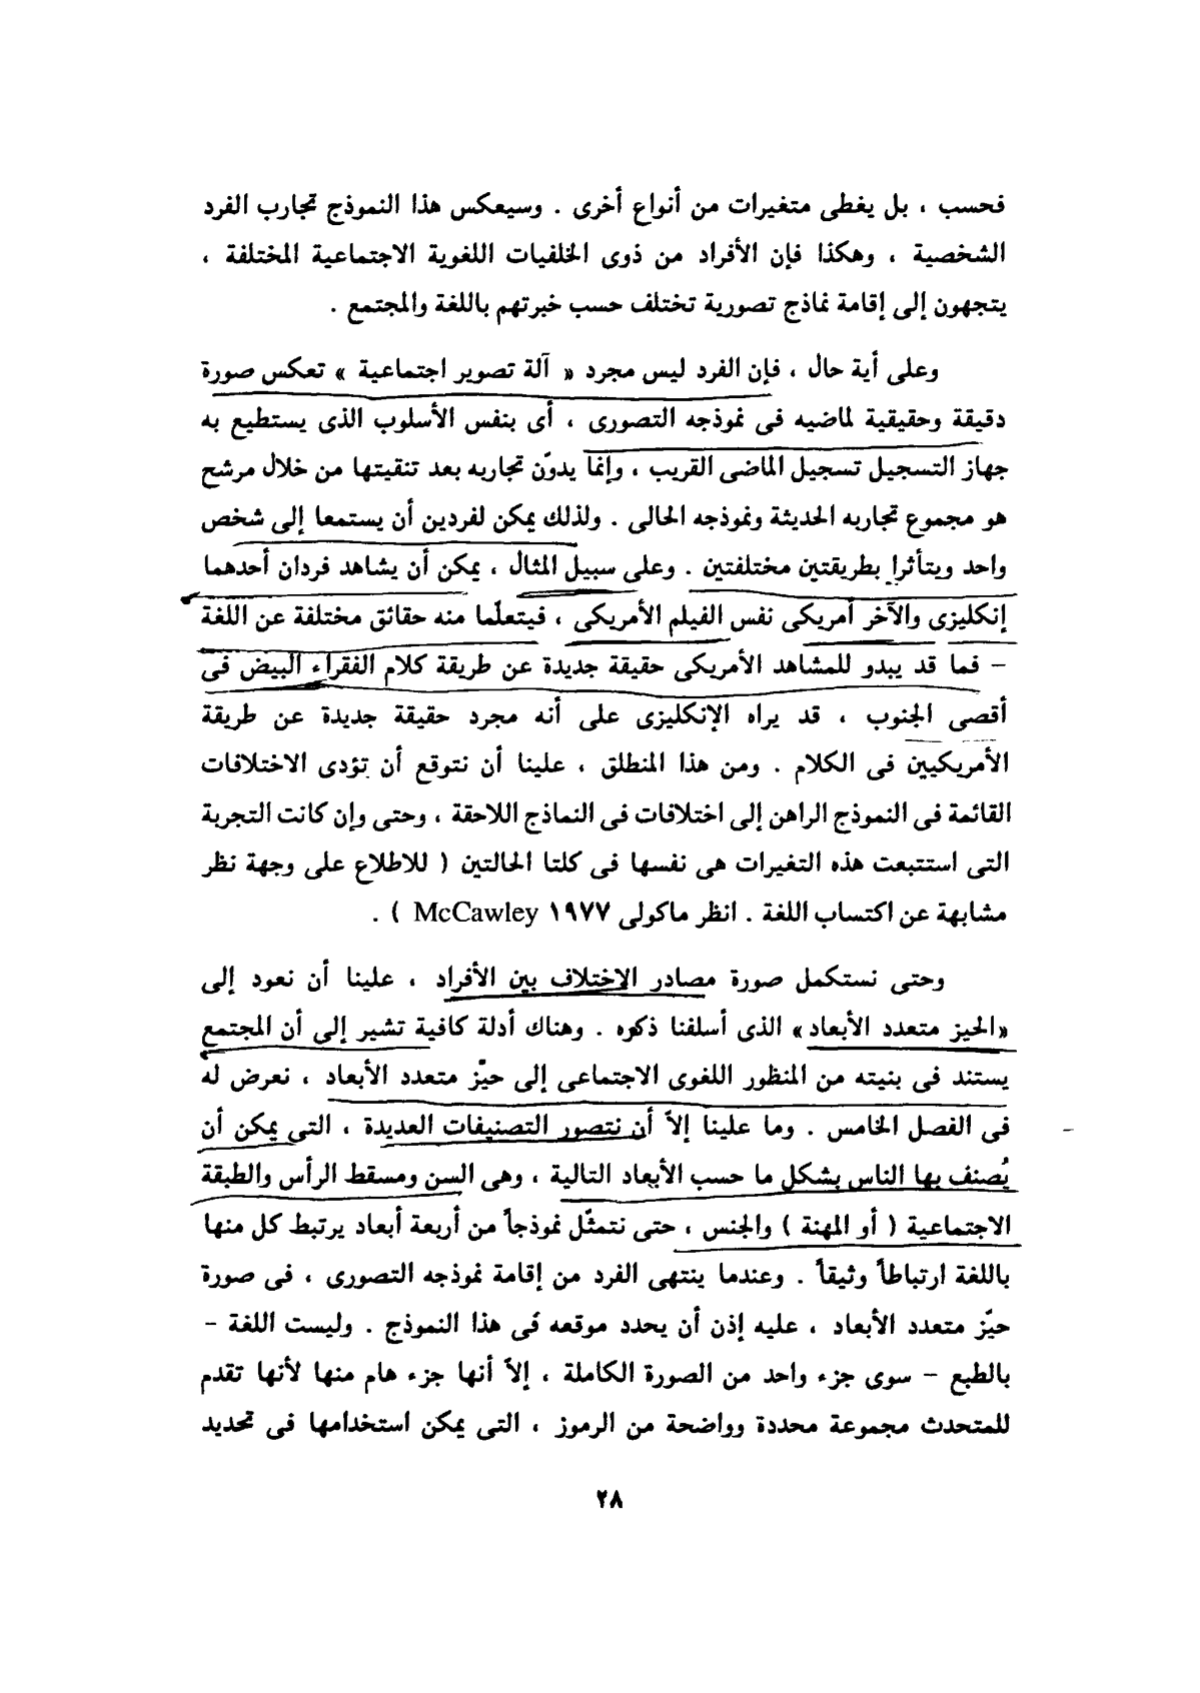 فحسب ، بل يغطى متغيرات من أنواع أخرى . وسيعكس هذا النموذج تجارب الفرد
الشخصية ، وهكذا فإن الأفراد من ذوى الخلفيات اللغوية الاجتماعية المختلفة ،
يتجهون إلى إقامة نماذج تصورية تختلف حسب خبرتهم باللغة والمجتمع .
وعلى أية حال ، فإن الفرد ليس مجرد « آلة تصوير اجتماعية » تعكس صورة
دقيقة وحقيقية لماضيه فى نموذجه التصورى ، أى بنفس الأسلوب الذى يستطيع به
جهاز التسجيل تسجيل الماضى القريب ، وإنما يدوّن تجاربه بعد تنقيتها من خلال مرشح
هو مجموع تجاربه الحديثة ونموذجه الحالى . ولذلك يمكن لفردين أن يستمعا إلى شخص
واحد ويتأثرا بطريقتين مختلفتين . وعلى سبيل المثال ، يمكن أن يشاهد فردان أحدهما
إنكليزى والآخر أمريكى نفس الفيلم الأمريكى ، فيتعلّما منه حقائق مختلفة عن اللغة
– فما قد يبدو للمشاهد الأمريكى حقيقة جديدة عن طريقة كلام الفقراء البيض فى
أقصى الجنوب ، قد يراه الإنكليزى على أنه مجرد حقيقة جديدة عن طريقة
الأمريكيين فى الكلام . ومن هذا المنطلق ، علينا أن نتوقع أن تؤدى الاختلافات
القائمة فى النموذج الراهن إلى اختلافات فى النماذج اللاحقة ، وحتى وإن كانت التجربة
التى استتبعت هذه التغيرات هى نفسها فى كلتا الحالتين ( للاطلاع على وجهة نظر
مشابهة عن اكتساب اللغة . انظر ماكولى ١٩٧٧ McCawley ) .
وحتى نستكمل صورة مصادر الاختلاف بين الأفراد ، علينا أن نعود إلى
«الحيز متعدد الأبعاد» الذى أسلفنا ذكره . وهناك أدلة كافية تشير إلى أن المجتمع
يستند فى بنيته من المنظور اللغوى الاجتماعى إلى حيّز متعدد الأبعاد ، نعرض له
فى الفصل الخامس . وما علينا إلاّ أن نتصور التصنيفات العديدة ، التى يمكن أن
يُصنف بها الناس بشكل ما حسب الأبعاد التالية ، وهى السن ومسقط الرأس والطبقة
الاجتماعية ( أو المهنة ) والجنس ، حتى نتمثّل نموذجاً من أربعة أبعاد يرتبط كل منها
باللغة ارتباطاً وثيقاً . وعندما ينتهى الفرد من إقامة نموذجه التصورى ، فى صورة
حيّز متعدد الأبعاد ، عليه إذن أن يحدد موقعه فى هذا النموذج . وليست اللغة –
بالطبع – سوى جزء واحد من الصورة الكاملة ، إلاّ أنها جزء هام منها لأنها تقدم
للمتحدث مجموعة محددة وواضحة من الرموز ، التى يمكن استخدامها فى تحديد
٢٨